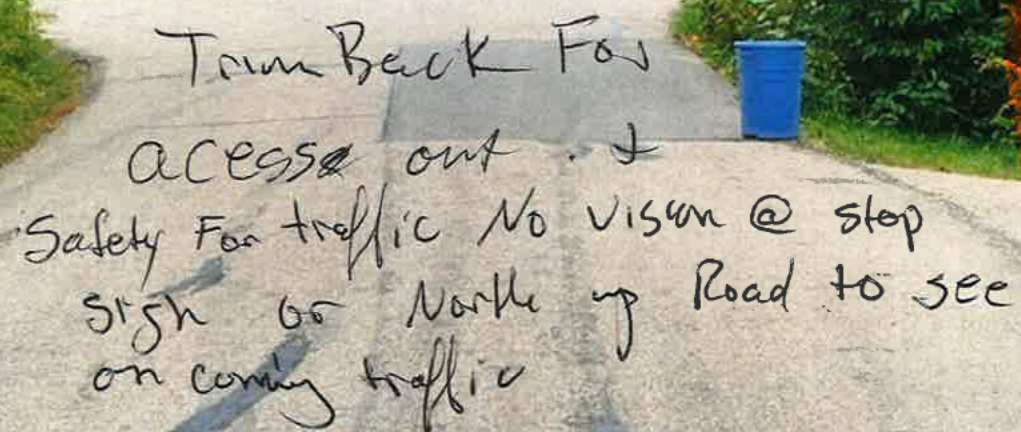 Trim Back For
acess out . &
Safety For traffic No vison @ stop
sign or North up Road to see
on coming traffic